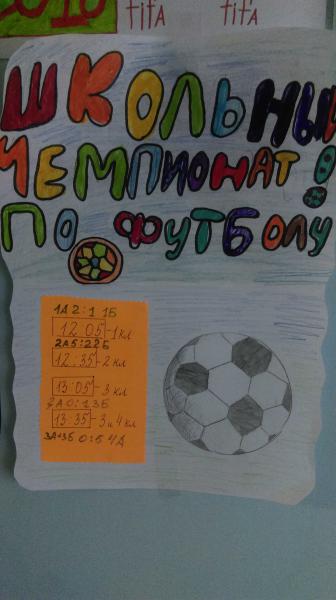 2018 fifA fifA
ШКОЛЬНЫ
ЧЕМПИОНАТ
ПО ФУТБОЛУ
1А 2:1 1Б
12 05 - 1 кл
2А 5:2 2Б
12:35 - 2 кл
13:05 - 3 кл
А 0:1 3Б
13 35 - 3 и 4 кл
0:5 4А